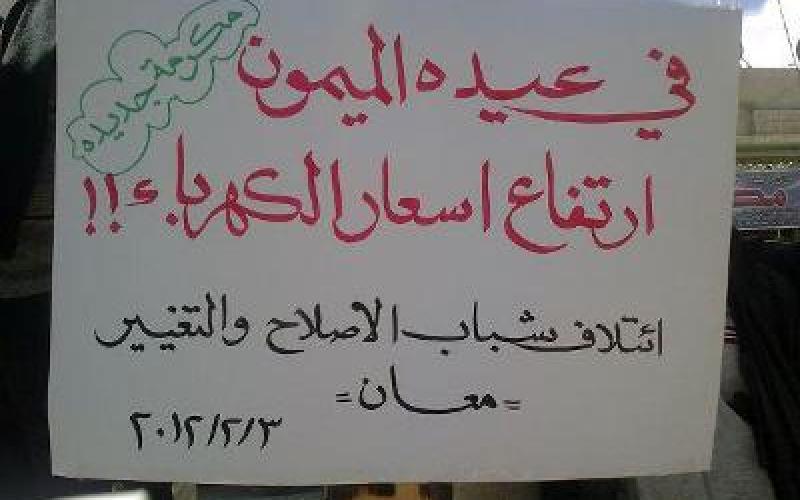 مكرمة جديده
في عيده الميمون
ارتفاع اسعار الكهرباء !!
ائتلاف شباب الاصلاح والتغيير
= معان =
٢٠١٢/٢/٣